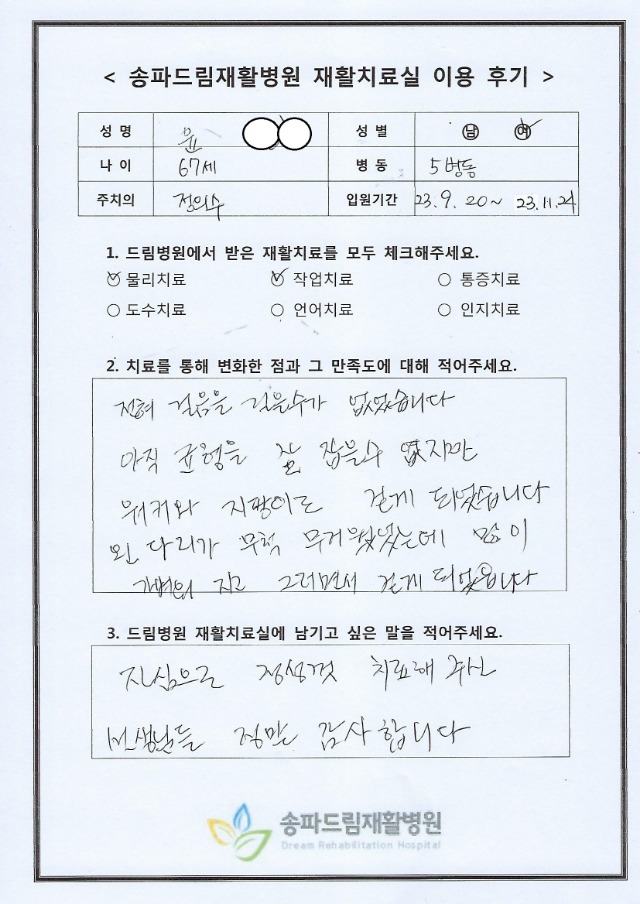 < 송파드림재활병원 재활치료실 이용 후기 >
성 명 윤 성 별 남 여
나 이 67세 병 동 5병동
주치의 정의수 입원기간 23.9.20~ 23.11.24
1. 드림병원에서 받은 재활치료를 모두 체크해주세요.
물리치료 작업치료 통증치료
도수치료 언어치료 인지치료
2. 치료를 통해 변화한 점과 그 만족도에 대해 적어주세요.
전혀 걸음을 걸을수가 없었습니다
아직 균형을 잘 잡을수 없지만
워커와 지팡이로 걷게 되었습니다
왼 다리가 무척 무거웠었는데 많이
가벼워 지고 그러면서 걷게 되었습니다
3. 드림병원 재활치료실에 남기고 싶은 말을 적어주세요.
진심으로 정성껏 치료해 주신
선생님들 정말 감사 합니다
송파드림재활병원
Dream Rehabilitation Hospital